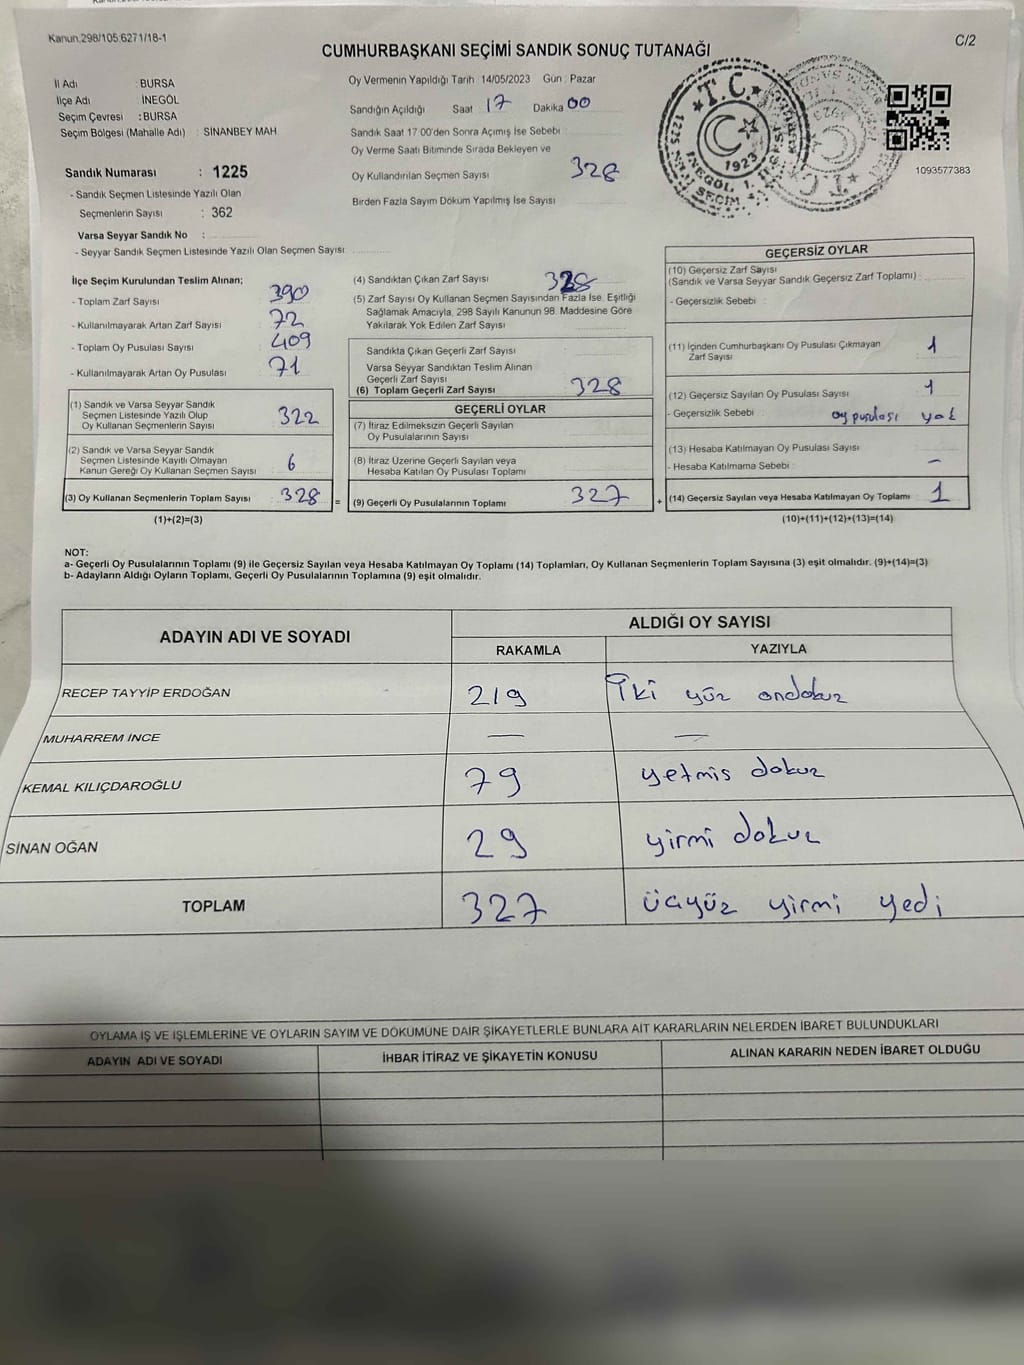 Kanun.298/105.6271/18-1
C/2
CUMHURBAŞKANI SEÇİMİ SANDIK SONUÇ TUTANAĞI
İl Adı : BURSA
İlçe Adı İNEGÖL
Seçim Çevresi : BURSA
Seçim Bölgesi (Mahalle Adı) : SİNANBEY MAH
Sandık Numarası : 1225
- Sandık Seçmen Listesinde Yazılı Olan
Seçmenlerin Sayısı : 362
Varsa Seyyar Sandık No :
- Seyyar Sandık Seçmen Listesinde Yazılı Olan Seçmen Sayısı
Oy Vermenin Yapıldığı Tarih : 14/05/2023 Gün : Pazar
Sandığın Açıldığı Saat 17 Dakika 00
Sandık Saat 17:00'den Sonra Açımış İse Sebebi :
Oy Verme Saati Bitiminde Sırada Bekleyen ve
Oy Kullandırılan Seçmen Sayısı 328
Birden Fazla Sayım Döküm Yapılmış İse Sayısı
T.C.
1923
1225 NOLU
İNEGÖL 1. İLÇE
SEÇİM
T.C.
1923
1093577383
İlçe Seçim Kurulundan Teslim Alınan;
- Toplam Zarf Sayısı 390
- Kullanılmayarak Artan Zarf Sayısı 72
- Toplam Oy Pusulası Sayısı 409
- Kullanılmayarak Artan Oy Pusulası 71
(1) Sandık ve Varsa Seyyar Sandık
Seçmen Listesinde Yazılı Olup
Oy Kullanan Seçmenlerin Sayısı 322
(2) Sandık ve Varsa Seyyar Sandık
Seçmen Listesinde Kayıtlı Olmayan
Kanun Gereği Oy Kullanan Seçmen Sayısı 6
(3) Oy Kullanan Seçmenlerin Toplam Sayısı 328 =
(1)+(2)=(3)
(4) Sandıktan Çıkan Zarf Sayısı 328
(5) Zarf Sayısı Oy Kullanan Seçmen Sayısından Fazla İse. Eşitliği
Sağlamak Amacıyla, 298 Sayılı Kanunun 98. Maddesine Göre
Yakılarak Yok Edilen Zarf Sayısı
Sandıkta Çıkan Geçerli Zarf Sayısı
Varsa Seyyar Sandıktan Teslim Alınan
Geçerli Zarf Sayısı
(6) Toplam Geçerli Zarf Sayısı 328
GEÇERLİ OYLAR
(7) İtiraz Edilmeksizin Geçerli Sayılan
Oy Pusulalarının Sayısı
(8) İtiraz Üzerine Geçerli Sayılan veya
Hesaba Katılan Oy Pusulası Toplamı
(9) Geçerli Oy Pusulalarının Toplamı 327 +
GEÇERSİZ OYLAR
(10) Geçersiz Zarf Sayısı
(Sandık ve Varsa Seyyar Sandık Geçersiz Zarf Toplamı) :
- Geçersizlik Sebebi :
(11) İçinden Cumhurbaşkanı Oy Pusulası Çıkmayan
Zarf Sayısı 1
(12) Geçersiz Sayılan Oy Pusulası Sayısı 1
- Geçersizlik Sebebi : oy pusulası yok
(13) Hesaba Katılmayan Oy Pusulası Sayısı
- Hesaba Katılmama Sebebi : –
(14) Geçersiz Sayılan veya Hesaba Katılmayan Oy Toplamı 1
(10)+(11)+(12)+(13)=(14)
NOT:
a- Geçerli Oy Pusulalarının Toplamı (9) ile Geçersiz Sayılan veya Hesaba Katılmayan Oy Toplamı (14) Toplamları, Oy Kullanan Seçmenlerin Toplam Sayısına (3) eşit olmalıdır. (9)+(14)=(3)
b- Adayların Aldığı Oyların Toplamı, Geçerli Oy Pusulalarının Toplamına (9) eşit olmalıdır.
ADAYIN ADI VE SOYADI ALDIĞI OY SAYISI
RAKAMLA YAZIYLA
RECEP TAYYİP ERDOĞAN 219 İki yüz ondokuz
MUHARREM İNCE — —
KEMAL KILIÇDAROĞLU 79 yetmis dokuz
SİNAN OĞAN 29 yirmi dokuz
TOPLAM 327 üçyüz yirmi yedi
OYLAMA İŞ VE İŞLEMLERİNE VE OYLARIN SAYIM VE DÖKÜMÜNE DAİR ŞİKAYETLERLE BUNLARA AİT KARARLARIN NELERDEN İBARET BULUNDUKLARI
ADAYIN ADI VE SOYADI İHBAR İTİRAZ VE ŞİKAYETİN KONUSU ALINAN KARARIN NEDEN İBARET OLDUĞU